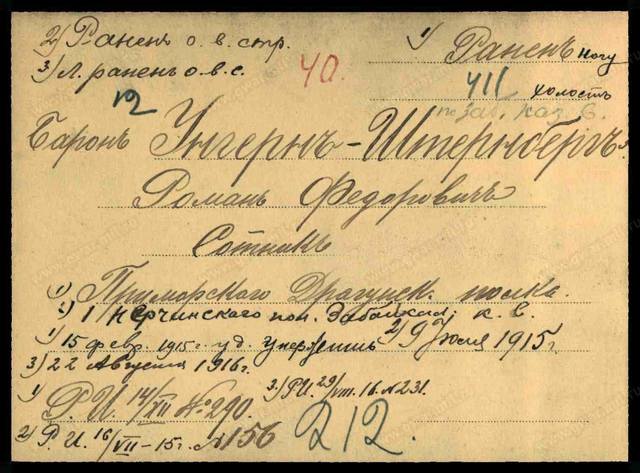 2) Раненъ о. в. стр.
1) Раненъ ногу
3) Л. раненъ о. в. с.
40.
411
холостъ
12
по Заб. каз. в.
Баронъ Унгернъ-Штернбергъ
Романъ Федоровичъ
Сотникъ
1) Приморского Драгунск. полка.
2) 1/ Нерчинского пол. Забайкал. к. в.
1) 15 февр. 1915 г. у д. 2) 9 Июля 1915 г.
3) 22 Августа 1916 г.
1) Р. И. 14/XII № 290. 3) Р.И. 29/VIII. 16. № 231.
2) Р. И. 16/VII – 15 г. № 156
212.